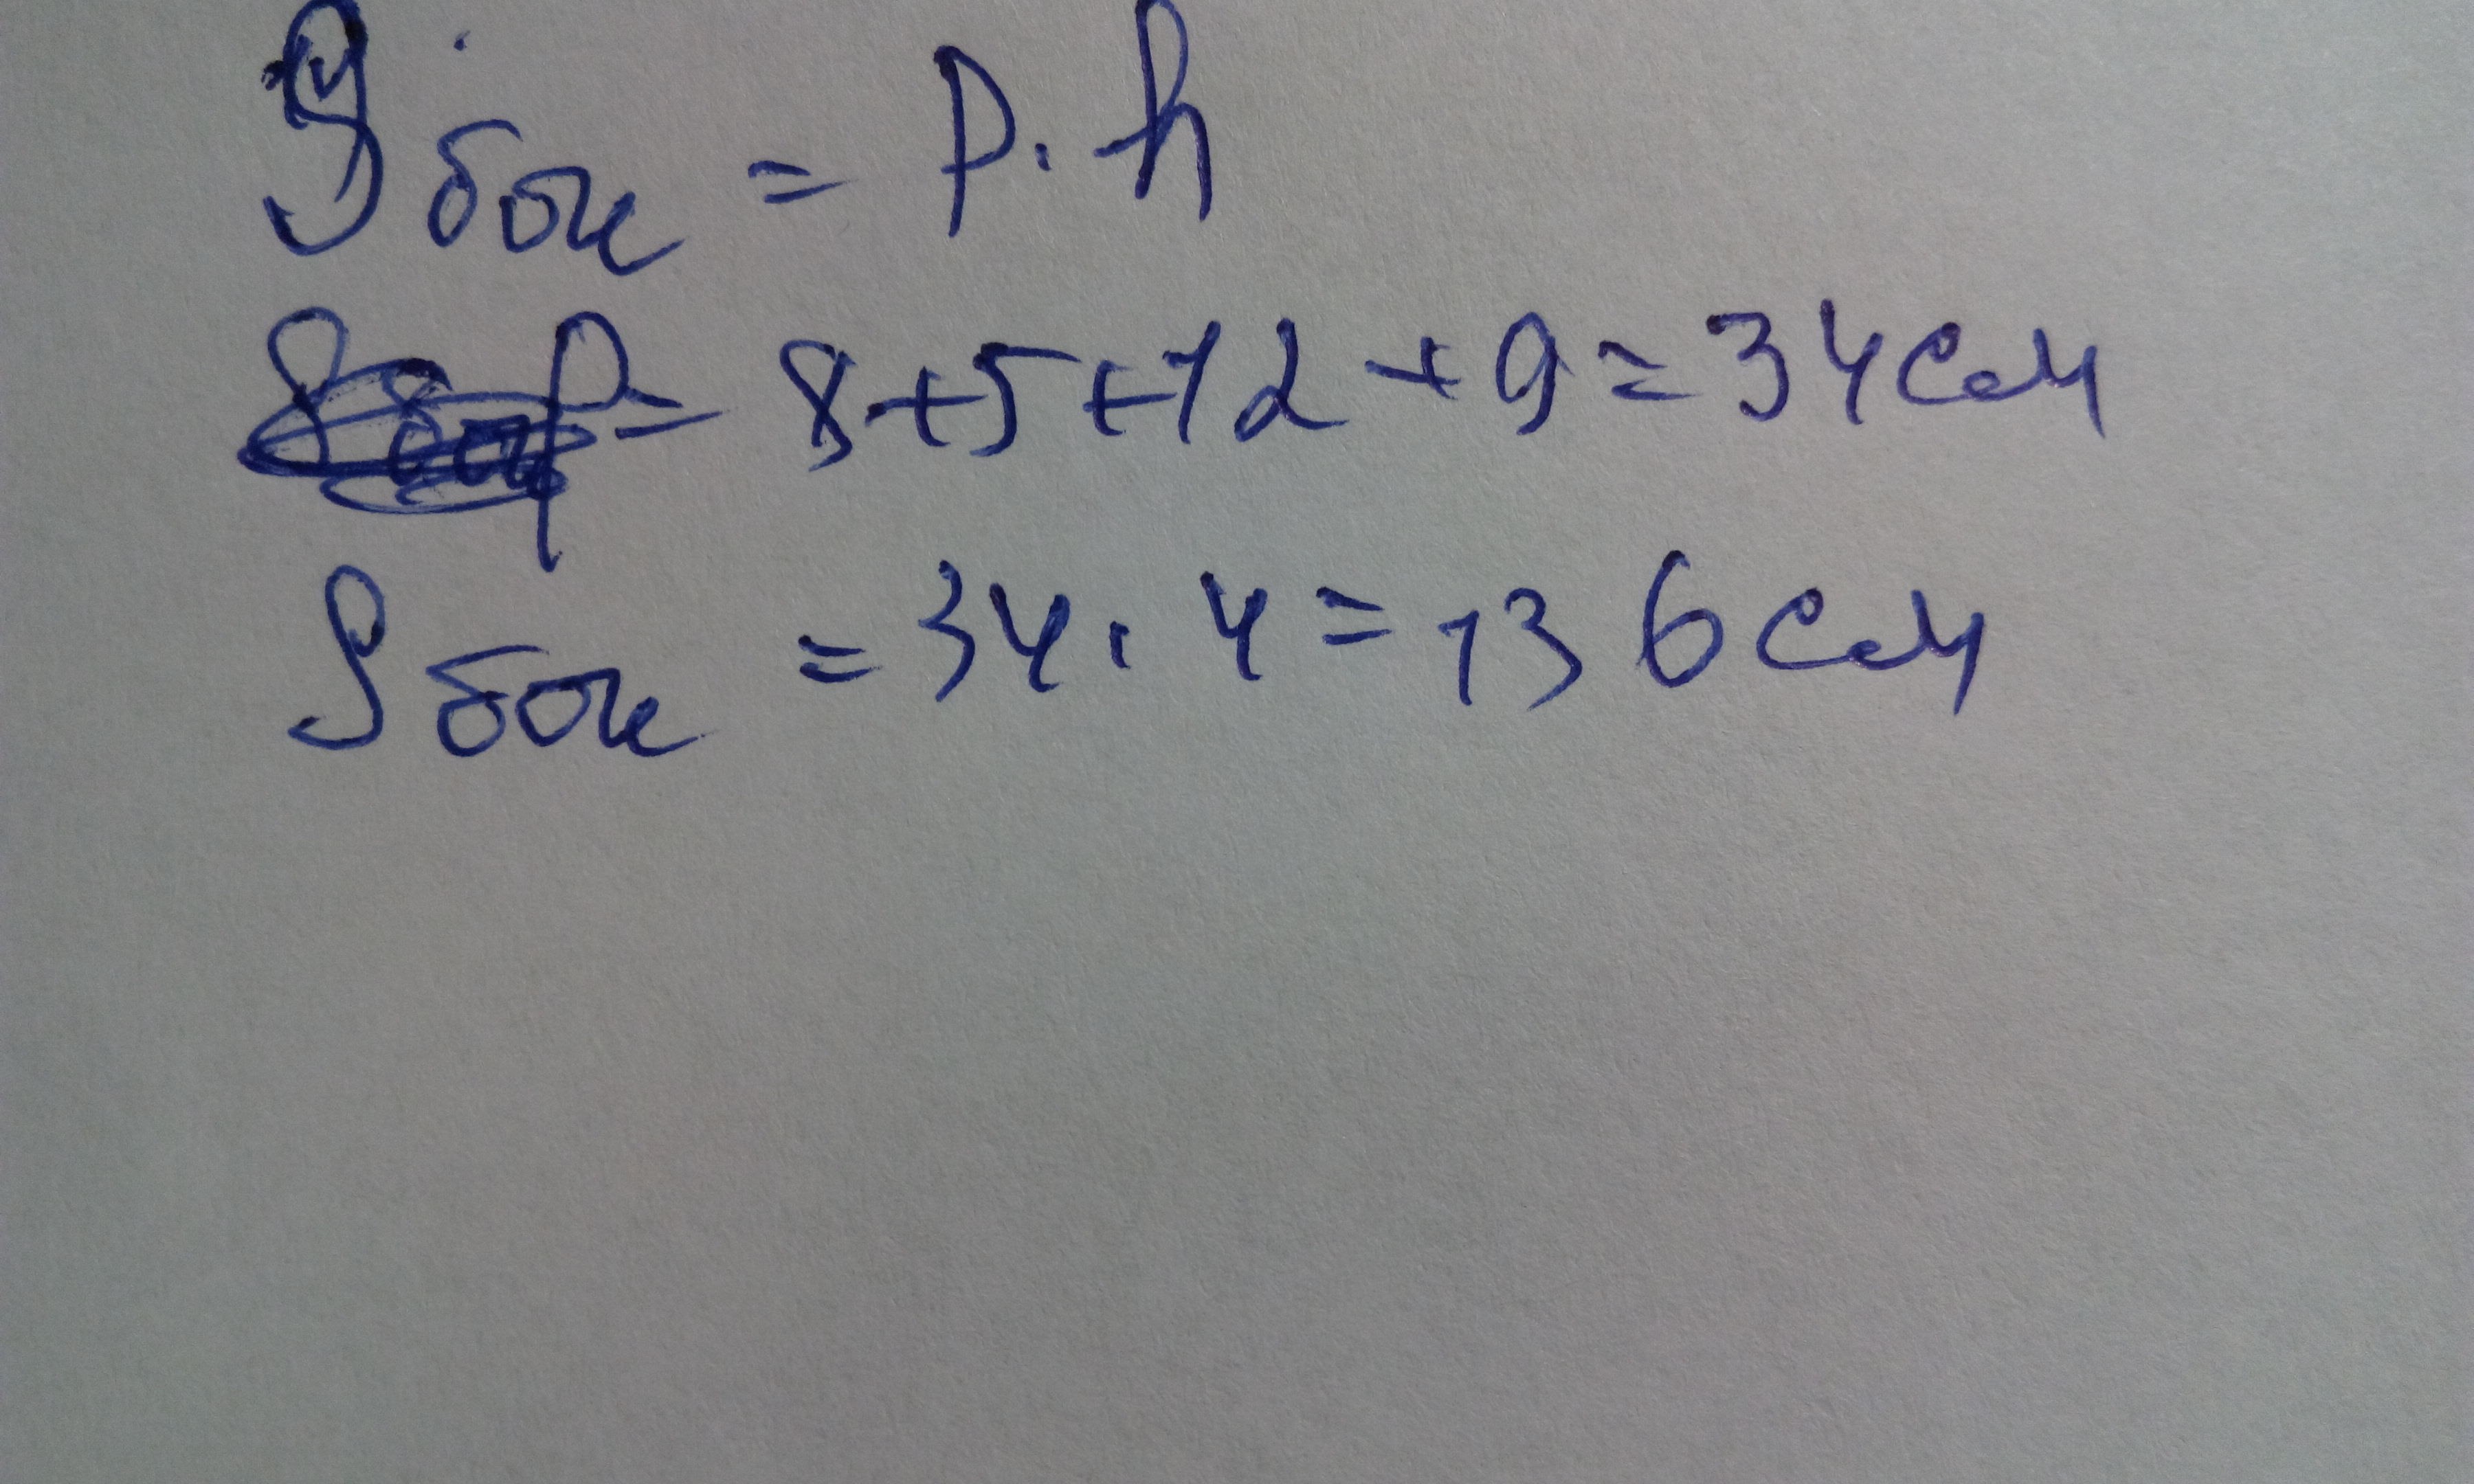 Sбок = P · h
P = 8+5+12+9=34см
Sбок = 34 · 4 = 136см